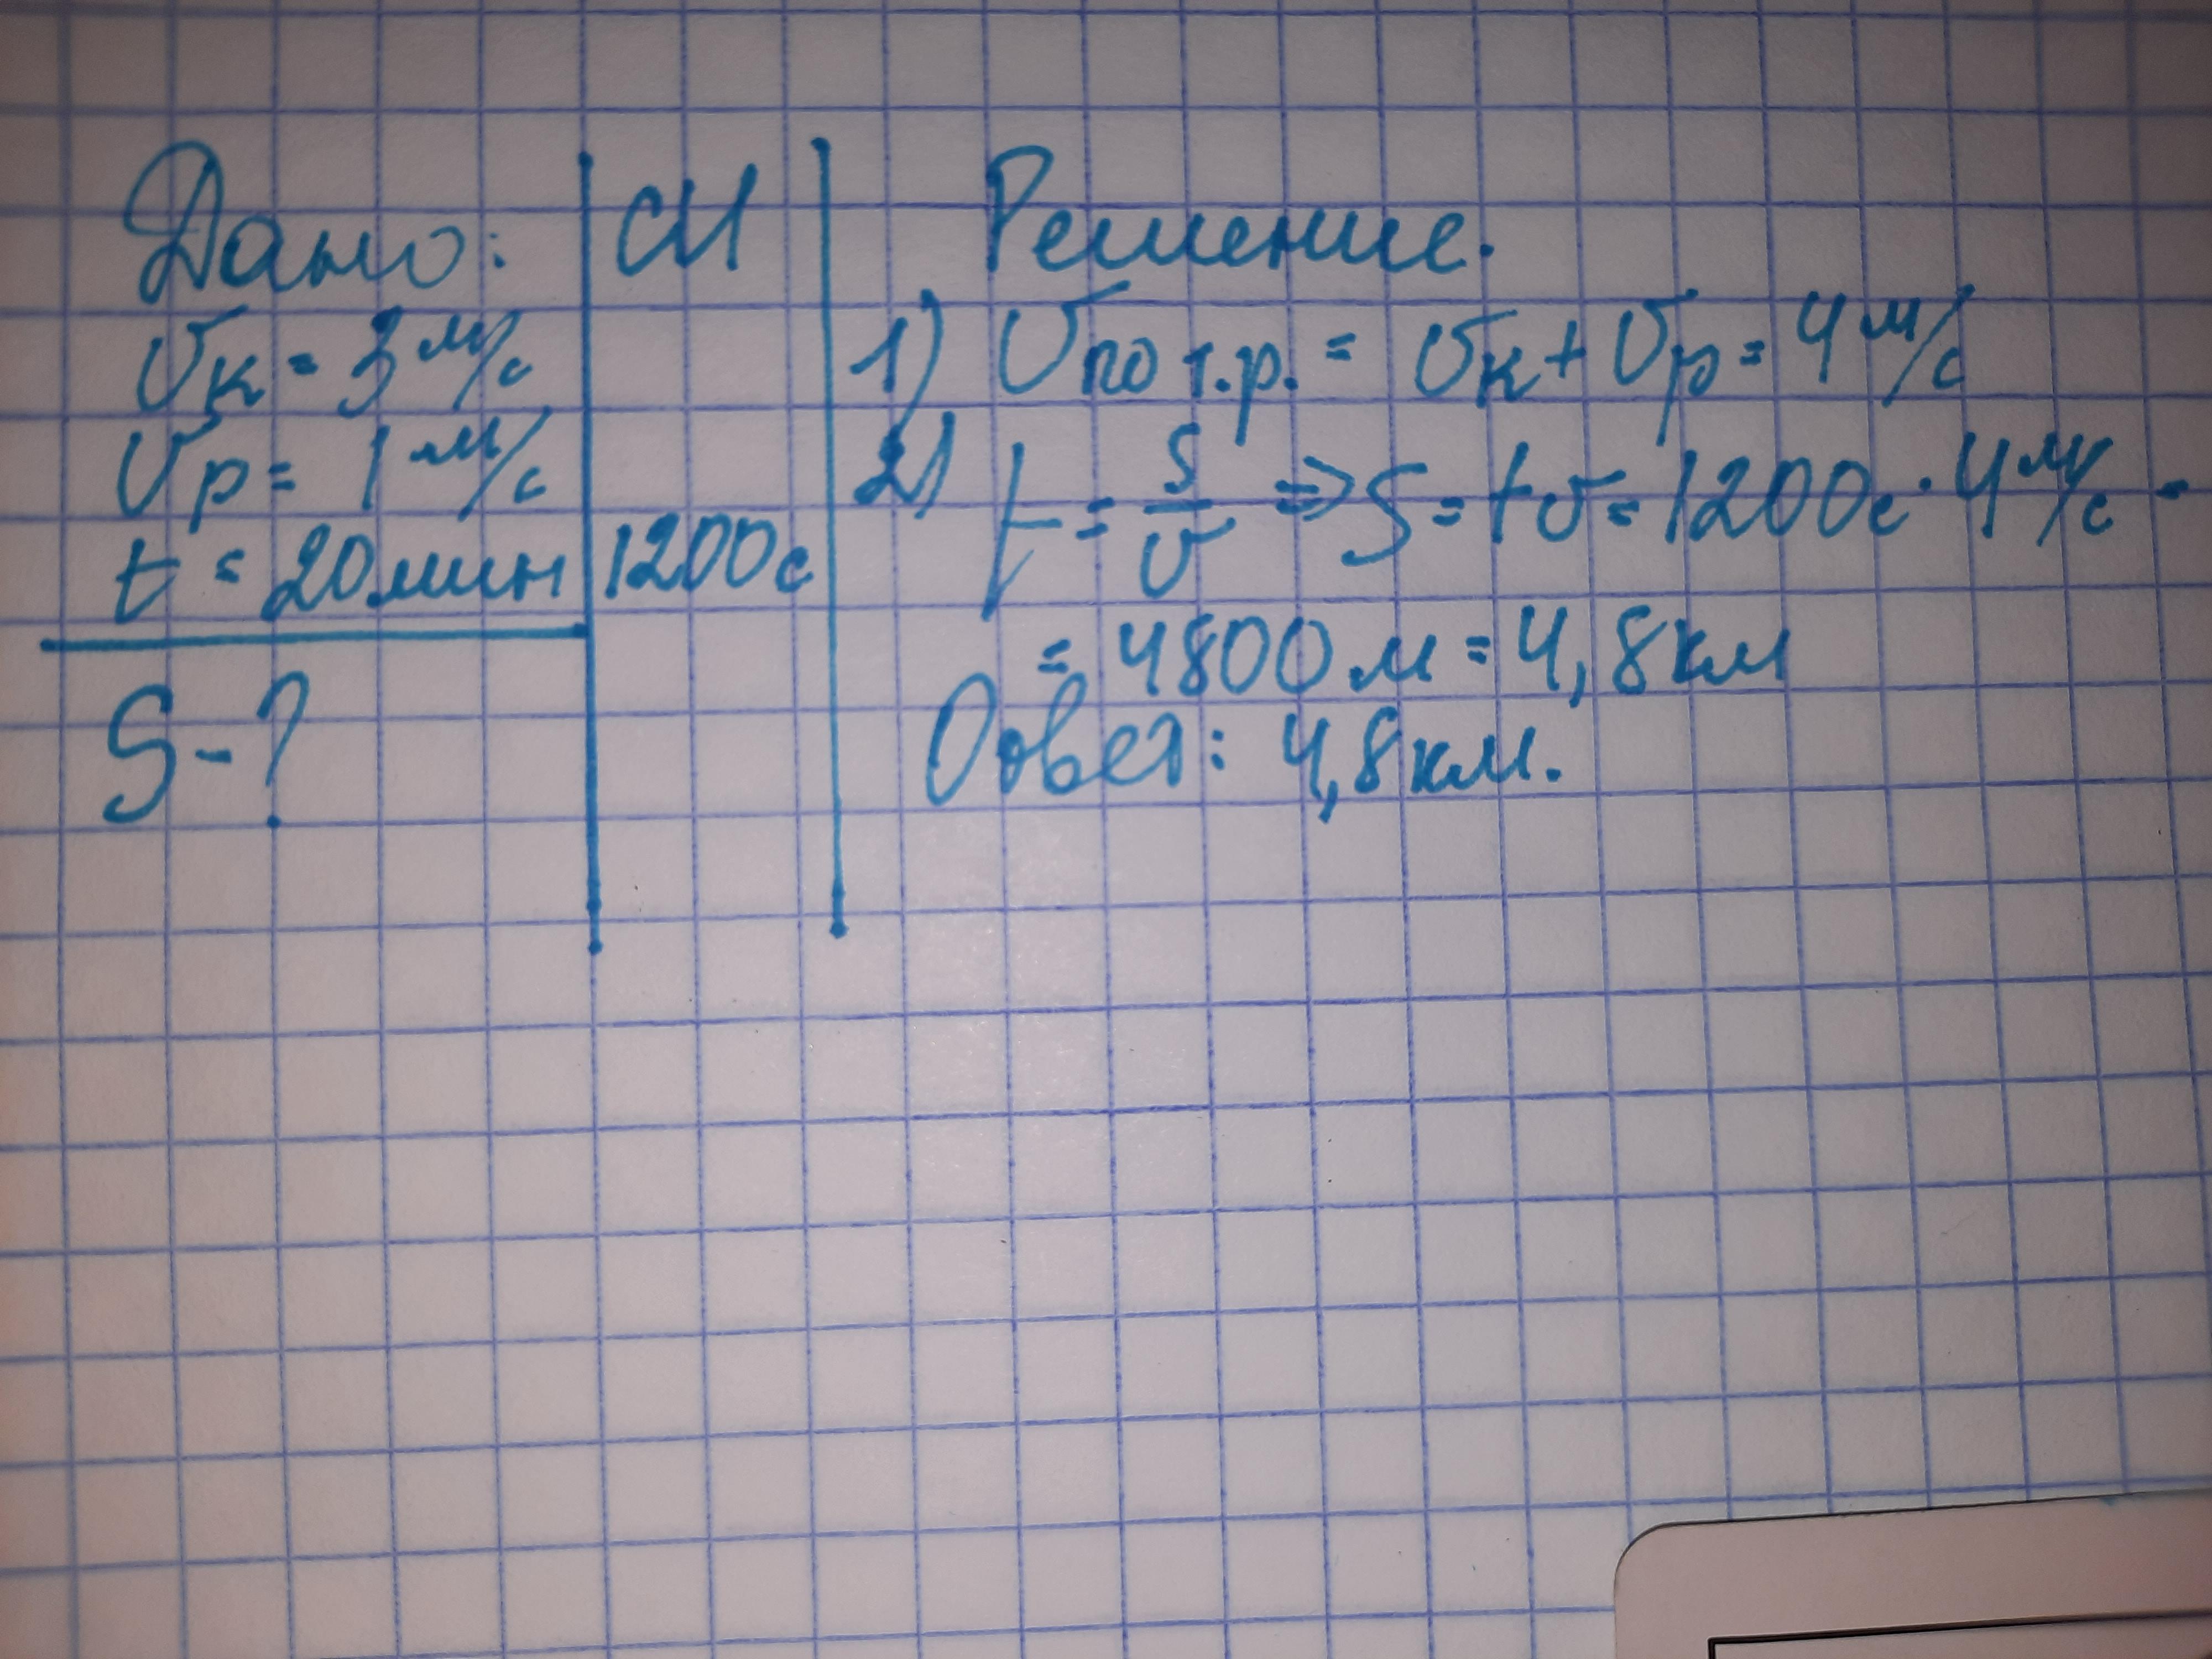 Дано:
υк = 3 м/с
υр = 1 м/с
t = 20 мин
S - ?
СИ
1200с
Решение.
1) υпо т.р. = υк + υр = 4 м/с
2) t = S/υ => S = tυ = 1200с · 4 м/с =
= 4800 м = 4,8 км
Ответ: 4,8 км.